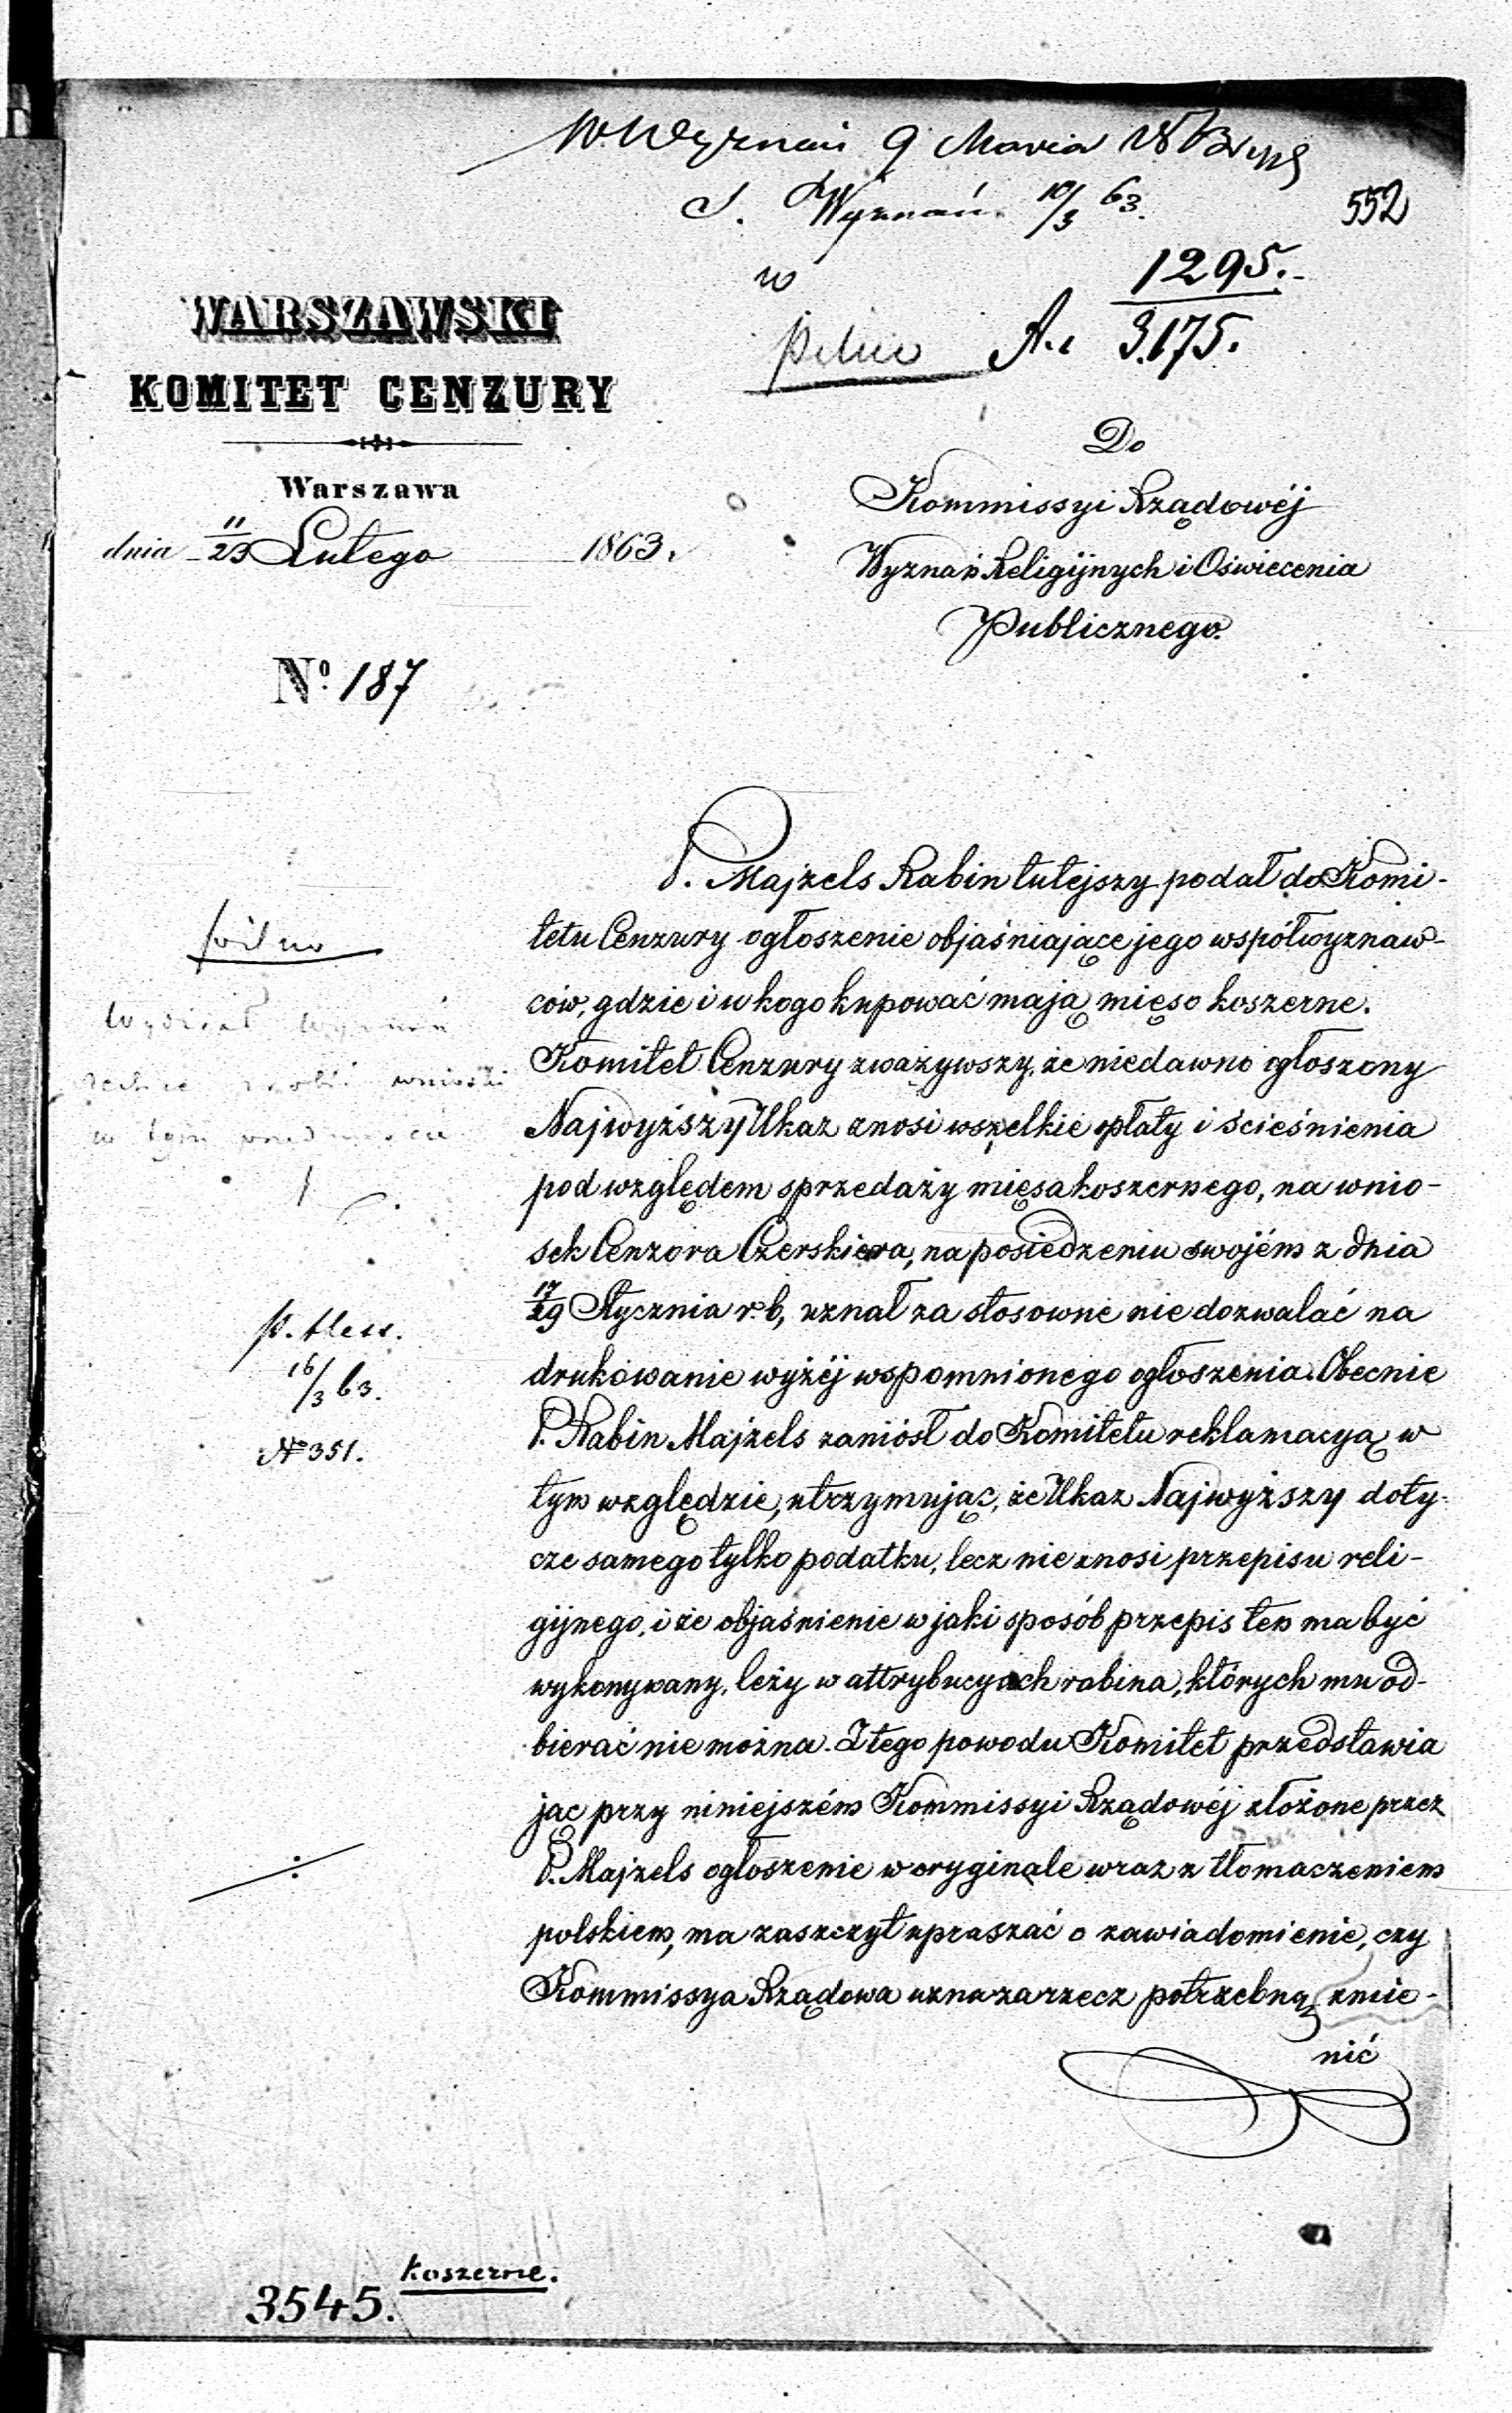 W. Wyznań 9 Marca
S. Wyznań 10/3 63.
552
w
1295.
pilno A. 3.175.
WARSZAWSKI
KOMITET CENZURY
Warszawa
dnia 11/23 Lutego 1863.
No. 187
Do
Kommissyi Rządowéj
Wyznań Religijnych i Oświecenia
Publicznego.
P. Majzels Rabin tutejszy podał do Komi-
tetu Cenzury ogłoszenie objaśniające jego współwyznaw-
ców, gdzie i u kogo kupować mają mięso koszerne.
Komitet Cenzury zważywszy, że niedawno ogłoszony
Najwyższy Ukaz znosi wszelkie opłaty i ścieśnienia
pod względem sprzedaży mięsa koszernego, na wnio-
sek Cenzora Czerskiera, na posiedzeniu swojém z dnia
17/29 Stycznia r. b, uznał za stosowne nie dozwalać na
drukowanie wyżéj wspomnionego ogłoszenia. Obecnie
P. Rabin Majzels zaniósł do Komitetu reklamacyą w
tym względzie, utrzymując, że Ukaz Najwyższy doty-
cze samego tylko podatku, lecz nie znosi przepisu reli-
gijnego, i że objaśnienie w jaki sposób przepis ten ma być
wykonywany, leży w attrybucyach rabina, których mu od-
bierać nie można. Z tego powodu Komitet przedstawia
jąc przy niniejszém Kommissyi Rządowéj złożone przez
P. Majzels ogłoszenie w oryginale wraz z tłomaczeniem
polskiem, ma zaszczyt upraszać o zawiadomienie, czy
Kommissya Rządowa uzna za rzecz potrzebną zmie-
nić
pilno
Wydział Wyznań
zechce zrobić wniosek
w tym przedmiocie
16/3 63.
No 351.
koszerne.
3545.